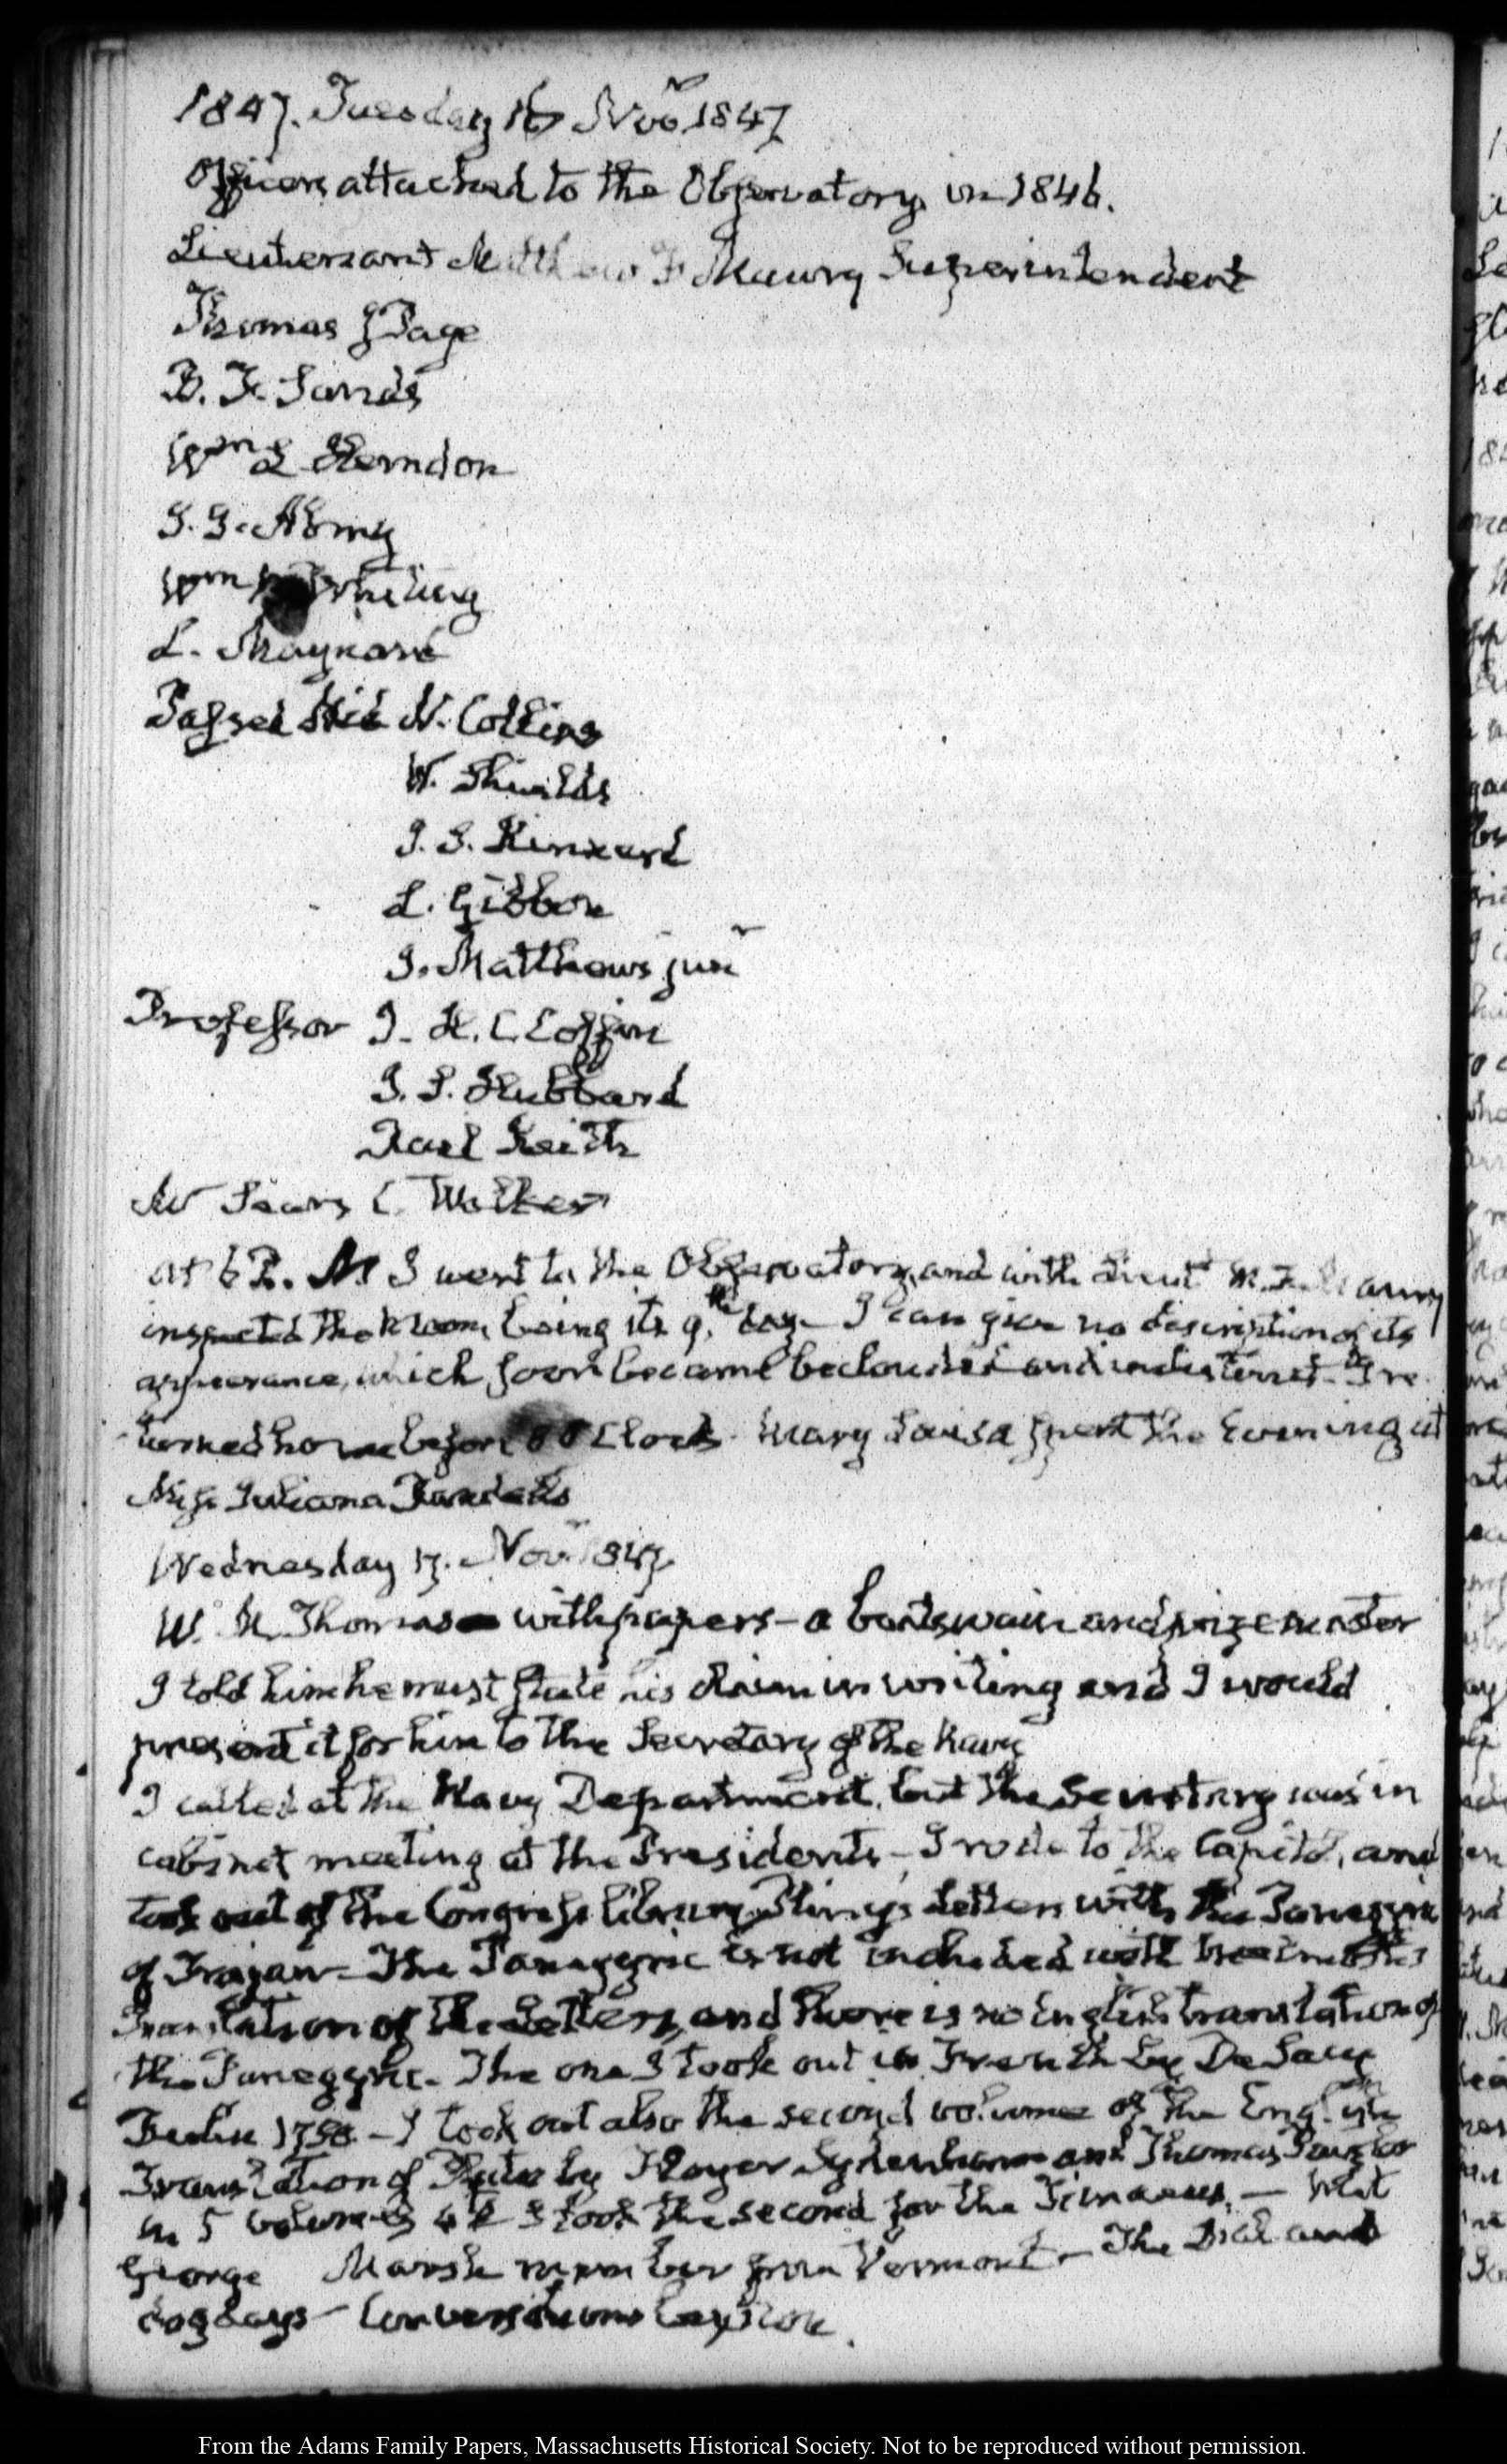 1847. Tuesday 16 Novr. 1847
Officers attached to the Observatory in 1846.
Lieutenant Matthew F Maury Superintendent
Thomas J Page
B. F. Sands
Wm L Herndon
J. J. Almy
Wm Whiting
L. Maynard
Passed Mid N. Collins
W. Shields
J. S. Kennard
L. Gibbon
J. Matthews junr
Professor J. H. C Coffin
J. S. Hubbard
Reuel Keith
Mr Sears C. Walker
at 6 P. M I went to the Observatory, and with Lieut M. F. Maury
inspected the Moon, being its 9.th day — I can give no description of its
appearance, which soon became beclouded and indistinct. I re
turned home before 8 O Clock. Mary Louisa spent the Evening at
Miss Juliana
Wednesday 17. Novr. 1847.
W. M. Thomas with papers — a boatswain and prize master
I told him he must state his claim in writing and I would
present it for him to the Secretary of the Navy
I called at the Navy Department, but the Secretary was in
cabinet meeting at the Presidents — I rode to the Capitol, and
took out of the Congress library Pliny's Letters with the Panegyric
of Trajan — The Panegyric is not included with
Translation of the Letters, and there is no English translation of
the Panegyric. The one I took out is French by De Sacy
Berlin 1750 — I took out also the second volume of the English
Translation of Plato by Floyer Sydenham and Thomas Taylor
in 5 volumes 4to I took the second for the Timaeus. — Met
George Marsh member from Vermont — The Dial and
dog days — Conversations
From the Adams Family Papers, Massachusetts Historical Society. Not to be reproduced without permission.